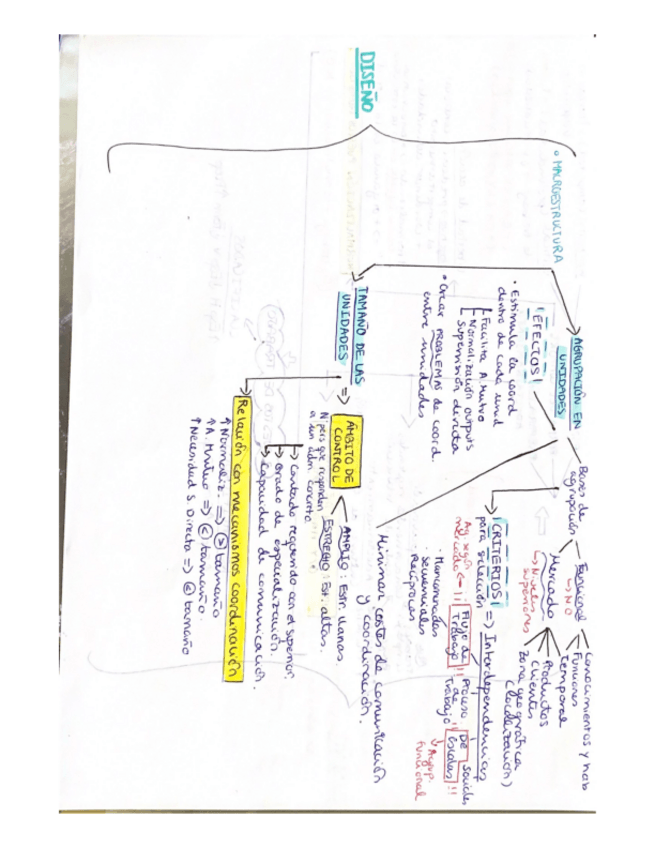 DISEÑO
• MACROESTRUCTURA
AGRUPACIÓN EN
UNIDADES
Bases de
agrupación
Funcional
↳ NO
Mercado
↳ Niveles
superiores
Conocimientos y hab
Funciones
Temporal
Productos
Clientes
Zona geográfica
(localización)
¡EFECTOS!
• Estimula la coord
dentro de cada unid
Facilita A. Mutuo
Normalización outputs
Supervisión directa
• Crear PROBLEMAS de coord.
entre unidades
¡CRITERIOS!
para selección
=> Interdependencias
Flujo de
Trabajo
Proceso
de
Trabajo
De
escalas
sociales
!!
Ag. según
mercado
↓ Agrup.
funcional
· Mancomunadas
· Secuenciales
· Recíprocas
Minimizar costes de comunicación
y coordinación.
TAMAÑO DE LAS
UNIDADES
=> ÁMBITO DE
CONTROL
Nº pers que responden
a un adm. concreto.
AMPLIO: Estr. llanas.
ESTRECHO: Estr. altas.
→ Contacto requerido con el superior.
→ Grado de especialización.
→ Capacidad de comunicación.
Relación con mecanismos coordinación
↑ Normaliz. => > tamaño
↑ A. Mutuo => < tamaño.
↑ Necesidad S. Directa => < tamaño